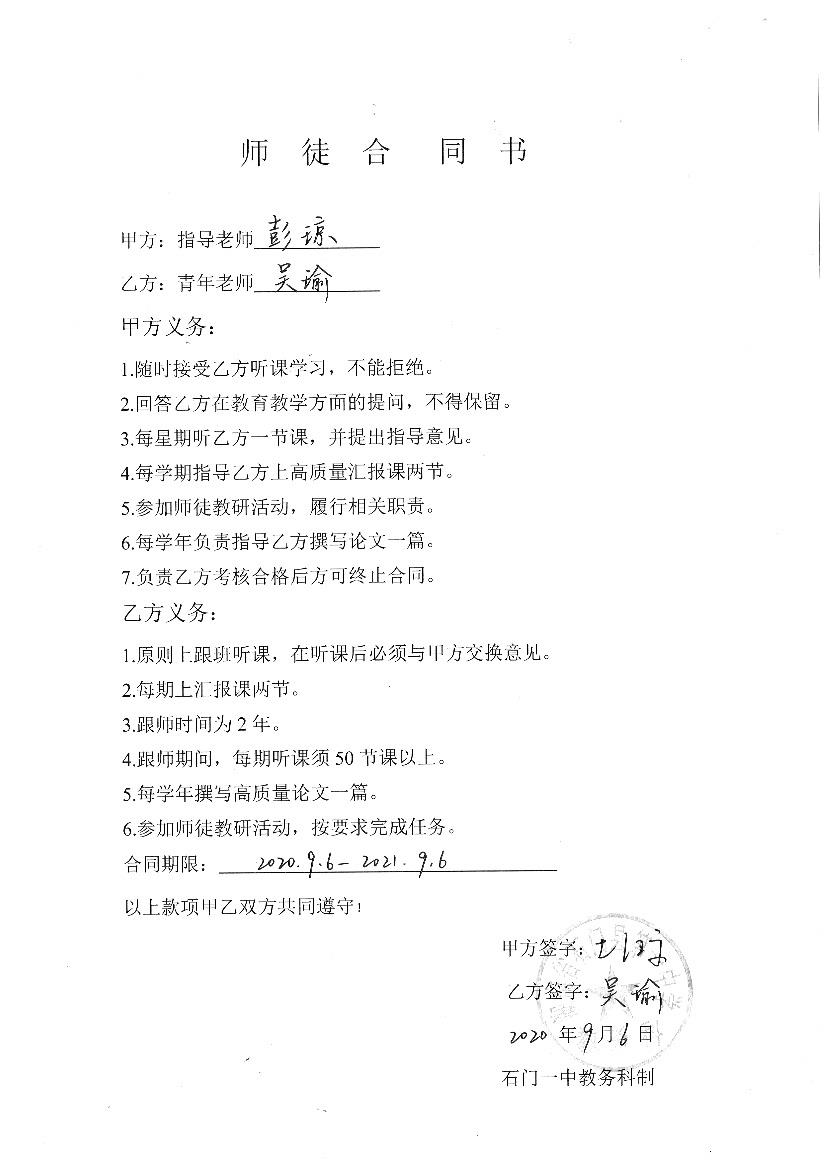 师徒合同书
甲方：指导老师彭琼
乙方：青年老师吴瑜
甲方义务：
1.随时接受乙方听课学习，不能拒绝。
2.回答乙方在教育教学方面的提问，不得保留。
3.每星期听乙方一节课，并提出指导意见。
4.每学期指导乙方上高质量汇报课两节。
5.参加师徒教研活动，履行相关职责。
6.每学年负责指导乙方撰写论文一篇。
7.负责乙方考核合格后方可终止合同。
乙方义务：
1.原则上跟班听课，在听课后必须与甲方交换意见。
2.每期上汇报课两节。
3.跟师时间为2年。
4.跟师期间，每期听课须50节课以上。
5.每学年撰写高质量论文一篇。
6.参加师徒教研活动，按要求完成任务。
合同期限：2020.9.6-2021.9.6
以上款项甲乙双方共同遵守！
甲方签字：
乙方签字：吴瑜
2020年9月6日
石门一中教务科制